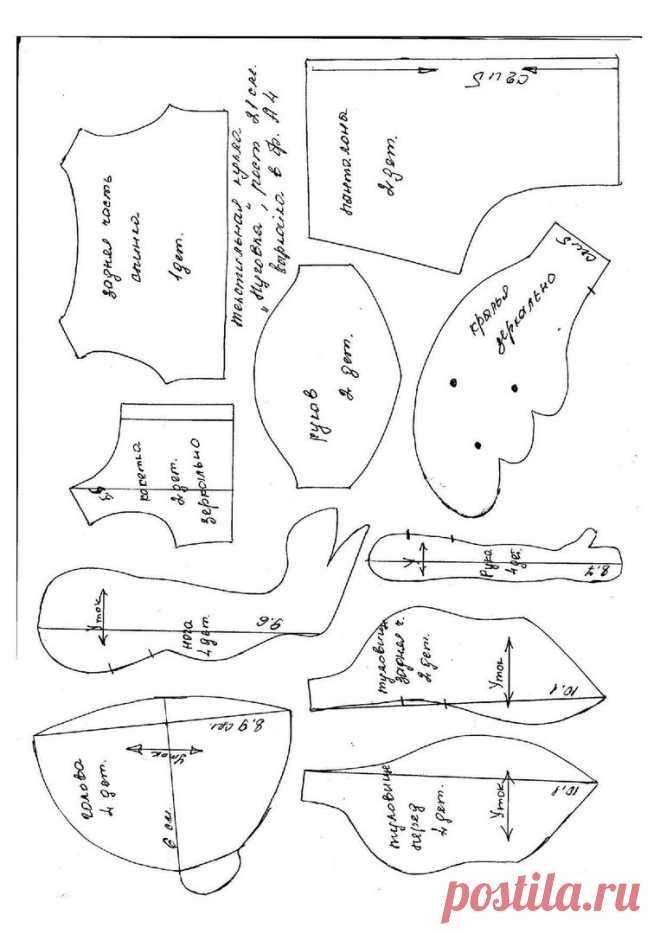 Текстильная кукла
„Пуговка", рост 21 см.
в ф. А4
сгиб
панталоны
2 дет.
задная часть
спинка
1 дет.
рукав
2 дет.
крылья
зеркально
сгиб
кокетка
2 дет.
зеркально
У
Рука
4 дет.
8,7
Уток
нога
4 дет.
9.6
туловище
задняя ч.
2 дет.
Уток
10,1
8,9 см.
Уток
голова
4 дет.
6 см.
туловище
перед
2 дет.
Уток
10,1
postila.ru